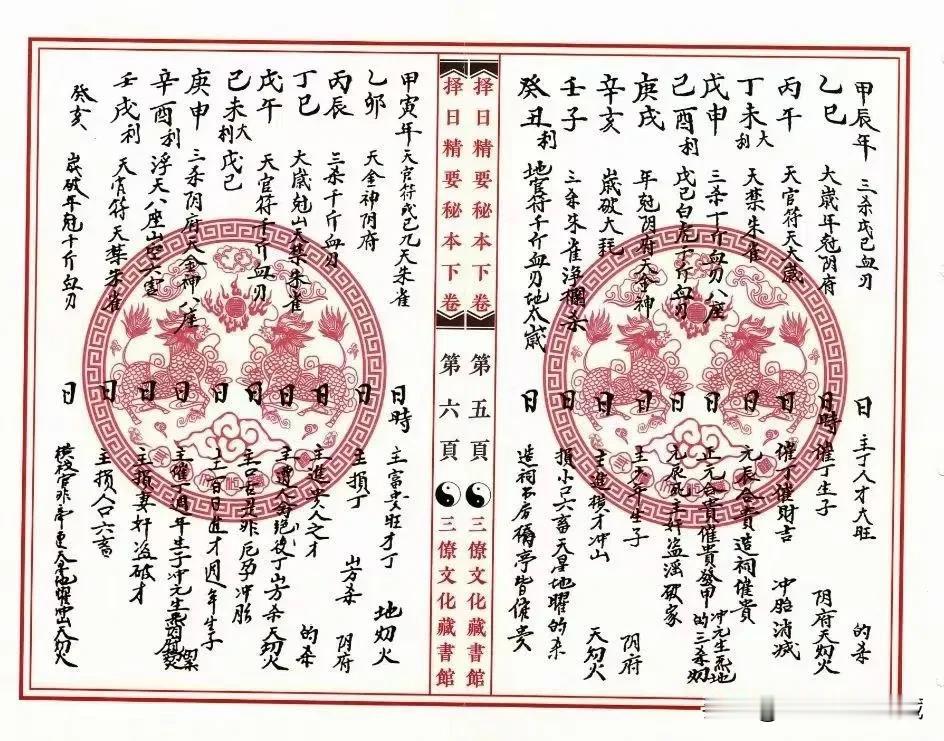 甲辰年 三杀戊己血刃 日 主丁人才大旺 的杀
乙巳 大歲年尅阴府 日時 催丁生子 阴府天刼火
丙午 天官符天大歲 日 催丁催財吉 冲胎消减
丁未大利 天禁朱雀 日 元辰合貴造祠催貴
戊申 三杀千斤血刃八座 日 正元合貴催貴發甲
己酉利 戊己白虎千斤血刃 日 元辰死主奸盗淫破家 的三杀刼
庚戌 年尅阴府天金神 日 主少年生子 阴府
辛亥 歲破大耗 日 主進橫才冲山 天刼火
壬子 三杀朱雀浄欄杀 日 損小口六畜天星地曜的杀
癸丑利 地官符千斤血刃地太歲 日 造祠不后橋亭皆催贵
择日精要秘本下卷 第五頁 三僚文化藏書館
择日精要秘本下卷 第六頁 三僚文化藏書館
甲寅年 天官符戊己九天朱雀 日時 主富貴旺才丁 地刼火
乙卯 天金神阴府 日 主損丁 阴府
丙辰 三杀千斤血刃 日 主進貴人之才
丁巳 大歲尅山天禁朱雀 日 的杀
戊午 天官符千斤血刃 日 主口舌是非厄孕冲胎
己未大利 戊己 日 主百日進才周年生子
庚申 三杀阴府天金神八座 日 主催一週年生子冲元生
辛酉利 浮天八座 日 主損妻奸盗破才
壬戌利 天官符天禁朱雀 日 主損人口六畜
癸亥 歲破年尅千斤血刃 日